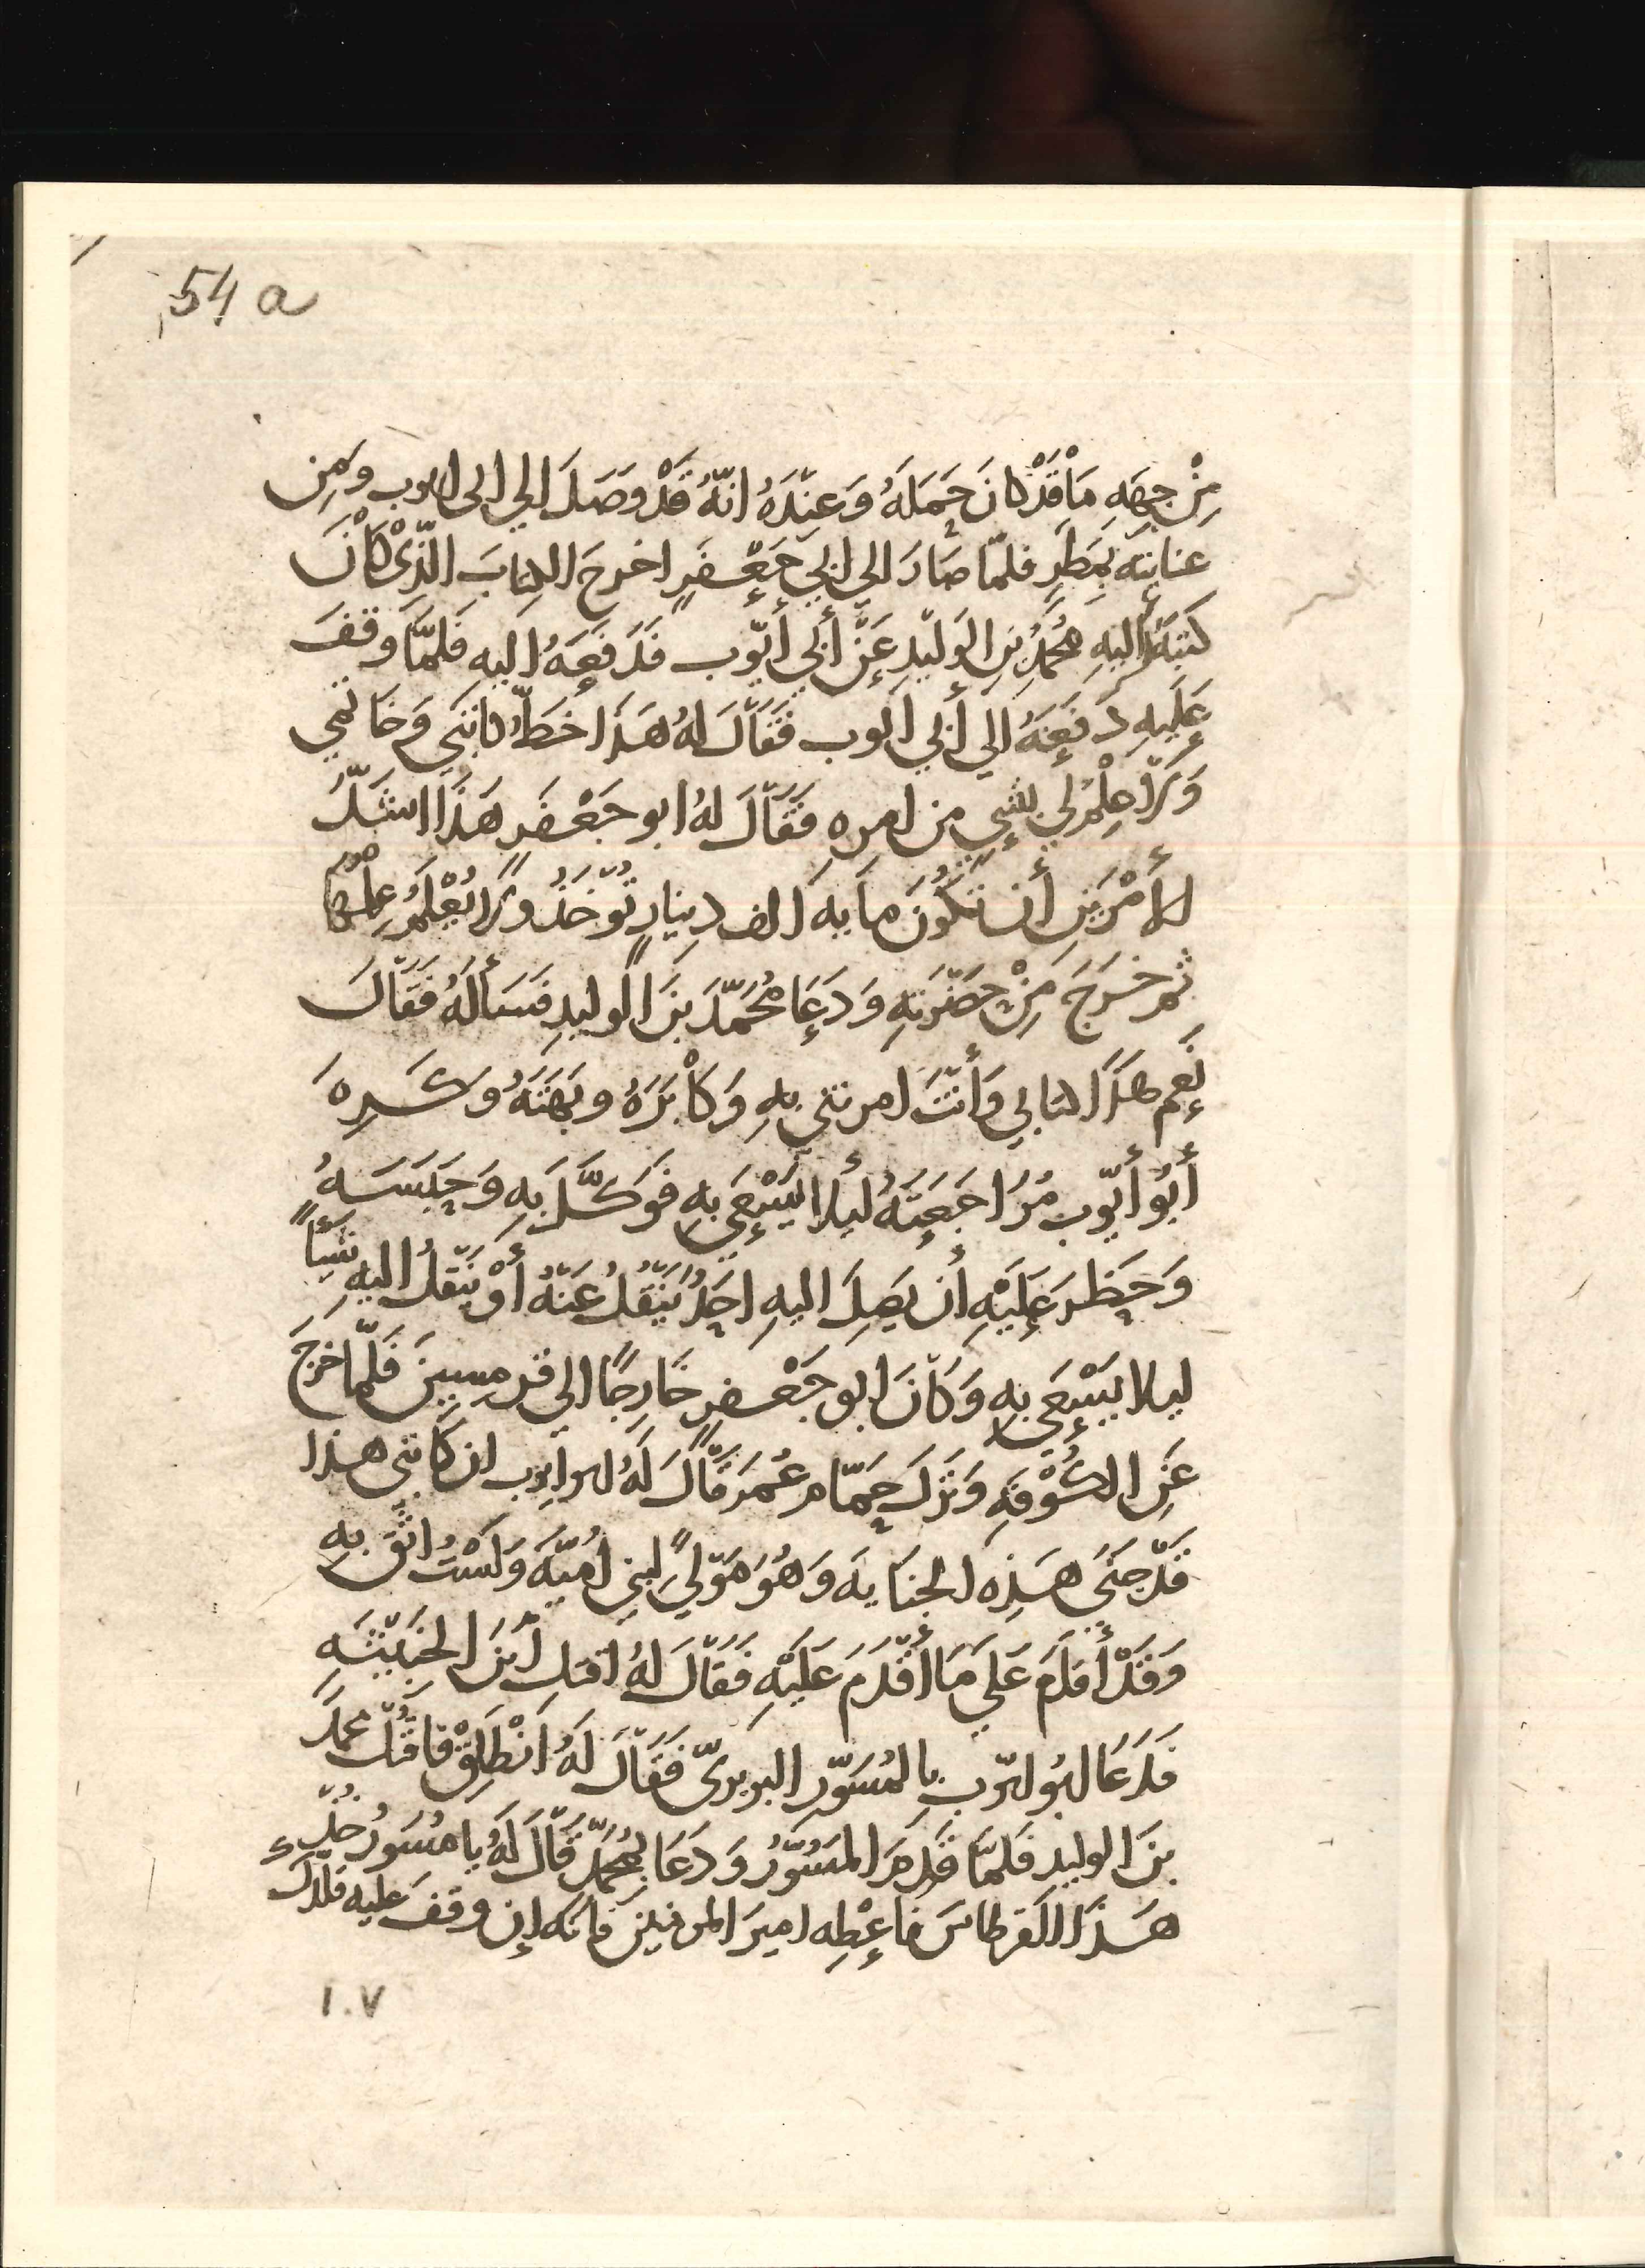 54 a
مِنْ جِهَهِ مَا قَدْ كانَ حَمَلَهُ وَعِنْدَهُ انّهُ قَدْ وصَلَ الي ابى ايوب ومِن
عنايتهِ بمَطَرٍ فلمّا صَارَ الي ابي جَعْفَرٍ اخرجَ الكِتابَ الّذِى كانَ
كتبَهُ اليهِ محُمّدُ بنِ الوَليْدِ عَنْ أبي أيّوب فَدَفَعَهُ اليهِ فَلمَّا وقفَ
عَلَيهِ دَفعَهُ الي أبي ايوب فَقَالَ لهُ هَذَا خَطّ كَاتبَي وَخَاتمي
وَلا عِلْمَ لي بشَيٍ من امرِه فقَالَ لهُ ابو جَعْفَرٍ هَذَا اشَدُّ
الأمْرَيَنِ أن تَكُونَ مايه الف دِينارٍ تُوّخَذُ ولا تُعْلَمُ عِلْمُهَا
ثم خرَجَ مِنْ حَضْرَتِهِ وَدَعَا مُحَمّدَ بنَ الوليدِ فسَألَهُ فَقَالَ
نَعَم هذَا كتابي وَأنْتَ امرتني بهِ وَكابَرَهُ وبَهَتَهُ وكَرِه
أبُو أيّوب مُرَاجَعَتَهُ ليلا يَسْعَى بهِ فوَكَّلَ بِهِ وَحَبَسَهُ
وَحَظَرَ عَلَيْهِ أن يَصِلَ اليهِ احَدٌ يَنْقُلُ عَنْهُ أوْ يَنقلُ اليهِ شَيأً
ليلا يَسْعَى بهِ وَكَانَ ابو جَعْفرٍ خَارِجًا الي قرمِسِينَ فَلمّا خرَجَ
عَنِ الكُوْفَهِ وَنَزلَ حمّام عُمَرَ قَالَ لَهُ ابو ايوب ان كَاتبى هذا
قَدْ جنَى هَذِهِ الجنَايه وَهُوَ مَوْليً لبنِي اميّه وَلَسْتُ اثقُ بهِ
وَقَدْ أقدَمَ عَلي مَا أقْدَمَ عَلَيْهِ فَقَالَ لهُ اقتلِ ابْنَ الخَبيْثَهِ
فدَعَا ابو ايّوب بالمُسَوّرِ البربرىّ فقَالَ لَهُ انْطَلِقْ فاقْتُلْ محمدَ
بنَ الوليدِ فَلمّا قَدِمَ المسَوّرُ وَدَعَا بمُحمّدٍ قالَ لَهُ يا مُسَوّرُ خُذْ
هَذَا القرطاسَ فاعْطِه اميرَ المومنين فانه إن وقفَ عليه فلك
١٠٧